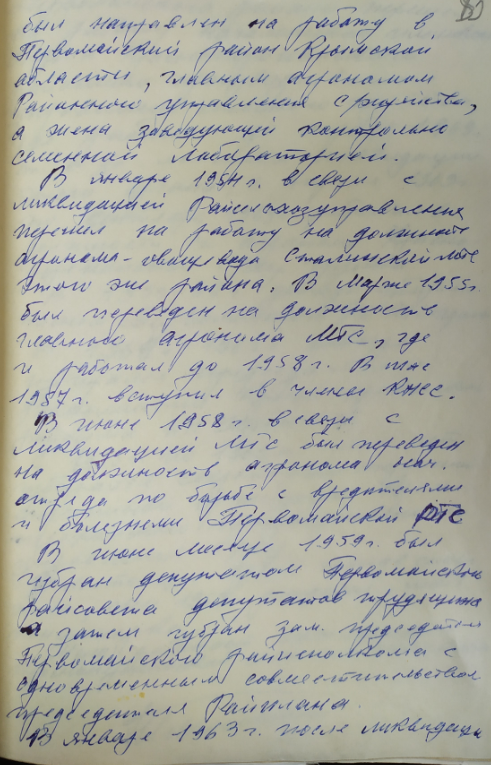 был направлен на работу в
Первомайский район Крымской
области, главным агрономом
Районного управления с/хозяйства,
а жена заведующей контрольно
семенной лабараторией.
В январе 1954 г. в связи с
ликвидацией Райсельхозуправления
перешел на работу на должность
агронома-овощевода Сталинской МТС
этого же района. В Марте 1955 г.
был переведен на должность
главного агронома МТС, где
и работал до 1958 г. В
1957 г. вступил в члены КПСС.
В июне 1958 г. в связи с
ликвидацией МТС был переведен
на должность агронома нач.
отряда по борьбе с вредителями
и болезнями Первомайской РТС
В июне месяце 1959 г. был
избран депутатом Первомайского
райсовета депутатов трудящихся
а затем избран зам. председателя
Первомайского райисполкома с
одновременным совместительством
председателя Райплана.
В январе 1963 г. после ликвидации